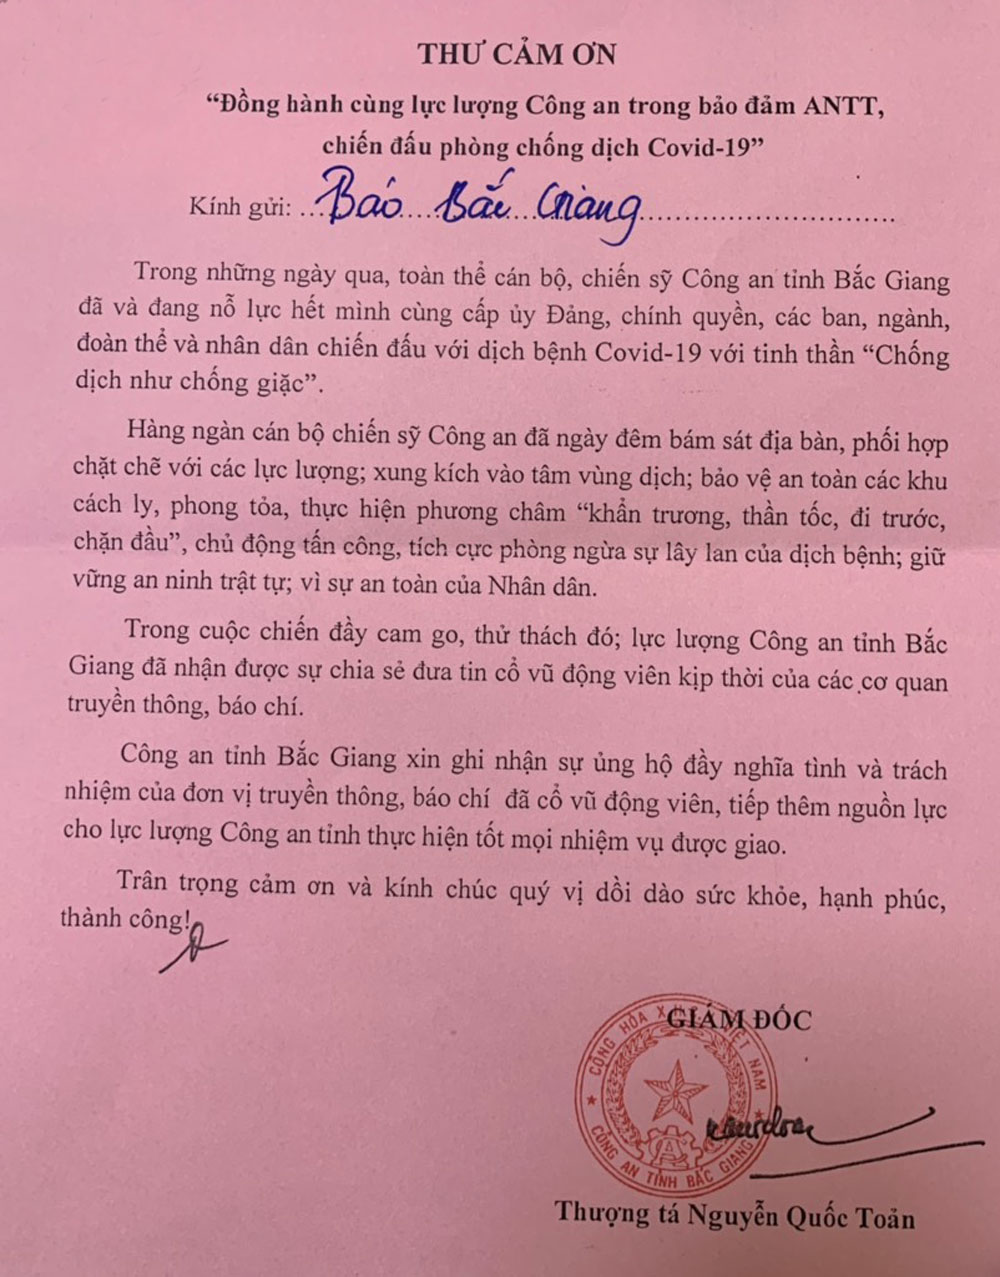 THƯ CẢM ƠN
“Đồng hành cùng lực lượng Công an trong bảo đảm ANTT,
chiến đấu phòng chống dịch Covid-19”
Kính gửi: ...Báo....Bắc...Giang..............................
Trong những ngày qua, toàn thể cán bộ, chiến sỹ Công an tỉnh Bắc Giang
đã và đang nỗ lực hết mình cùng cấp ủy Đảng, chính quyền, các ban, ngành,
đoàn thể và nhân dân chiến đấu với dịch bệnh Covid-19 với tinh thần “Chống
dịch như chống giặc”.
Hàng ngàn cán bộ chiến sỹ Công an đã ngày đêm bám sát địa bàn, phối hợp
chặt chẽ với các lực lượng; xung kích vào tâm vùng dịch; bảo vệ an toàn các khu
cách ly, phong tỏa, thực hiện phương châm “khẩn trương, thần tốc, đi trước,
chặn đầu”, chủ động tấn công, tích cực phòng ngừa sự lây lan của dịch bệnh; giữ
vững an ninh trật tự; vì sự an toàn của Nhân dân.
Trong cuộc chiến đầy cam go, thử thách đó; lực lượng Công an tỉnh Bắc
Giang đã nhận được sự chia sẻ đưa tin cổ vũ động viên kịp thời của các cơ quan
truyền thông, báo chí.
Công an tỉnh Bắc Giang xin ghi nhận sự ủng hộ đầy nghĩa tình và trách
nhiệm của đơn vị truyền thông, báo chí đã cổ vũ động viên, tiếp thêm nguồn lực
cho lực lượng Công an tỉnh thực hiện tốt mọi nhiệm vụ được giao.
Trân trọng cảm ơn và kính chúc quý vị dồi dào sức khỏe, hạnh phúc,
thành công!
GIÁM ĐỐC
CỘNG HÒA X VIỆT NAM
CÔNG AN TỈNH BẮC GIANG
Thượng tá Nguyễn Quốc Toản